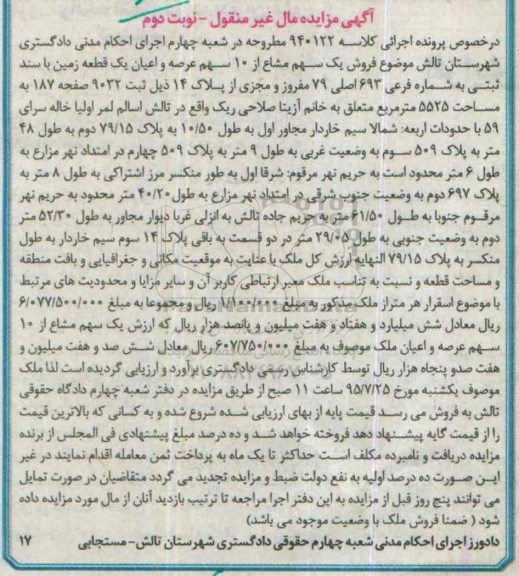 آگهی مزایده مال غیر منقول - نوبت دوم
درخصوص پرونده اجرائی کلاسه ۹۴۰۱۲۲ مطروحه در شعبه چهارم اجرای احکام مدنی دادگستری
شهرستان تالش موضوع فروش یک سهم مشاع از ۱۰ سهم عرصه و اعیان یک قطعه زمین با سند
ثبتی به شماره فرعی ۶۹۳ اصلی ۷۹ مفروز و مجزی از پلاک ۱۴ ذیل ثبت ۹۰۳۲ صفحه ۱۸۷ به
مساحت ۵۵۲۵ مترمربع متعلق به خانم آزیتا صلاحی ریک واقع در تالش اسالم لمر اولیا خاله سرای
۵۹ با حدودات اربعه: شمالا سیم خاردار مجاور اول به طول ۱۰/۵۰ به پلاک ۷۹/۱۵ دوم به طول ۴۸
متر به پلاک ۵۰۹ سوم به وضعیت غربی به طول ۹ متر به پلاک ۵۰۹ چهارم در امتداد نهر مزارع به
طول ۶ متر محدود است به حریم نهر مرقوم: شرقا اول به طور منکسر مرز اشتراکی به طول ۸ متر به
پلاک ۶۹۷ دوم به وضعیت جنوب شرقی در امتداد نهر مزارع به طول ۴۰/۲۰ متر محدود به حریم نهر
مرقوم جنوبا به طول ۶۱/۵۰ متر به حریم جاده تالش به انزلی غربا دیوار مجاور به طول ۵۲/۳۰ متر
دوم به وضعیت جنوبی به طول ۲۹/۰۵ متر در دو قسمت به باقی پلاک ۱۴ سوم سیم خاردار به طول
منکسر به پلاک ۷۹/۱۵ النهایه ارزش کل ملک با عنایت به موقعیت مکانی و جغرافیایی و بافت منطقه
و مساحت قطعه و نسبت به تناسب ملک معبر ارتباطی کاربر آن و سایر مزایا و محدودیت های مرتبط
با موضوع اسقرار هر متراژ ملک مذکور به مبلغ ۱/۱۰۰/۰۰۰ ریال و مجموعا به مبلغ ۶/۰۷۷/۵۰۰/۰۰۰
ریال معادل شش میلیارد و هفتاد و هفت میلیون و پانصد هزار ریال که ارزش یک سهم مشاع از ۱۰
سهم عرصه و اعیان ملک موصوف به مبلغ ۶۰۷/۷۵۰/۰۰۰ ریال معادل شش صد و هفت میلیون و
هفت صدو پنجاه هزار ریال توسط کارشناس رسمی دادگستری برآورد و ارزیابی گردیده است لذا ملک
موصوف یکشنبه مورخ ۹۵/۷/۲۵ ساعت ۱۱ صبح از طریق مزایده در دفتر شعبه چهارم دادگاه حقوقی
تالش به فروش می رسد قیمت پایه از بهای ارزیابی شده شروع شده و به کسانی که بالاترین قیمت
را از قیمت گایه پیشنهاد دهد فروخته خواهد شد و ده درصد مبلغ پیشنهادی فی المجلس از برنده
مزایده دریافت و نامبرده مکلف است حداکثر تا یک ماه به پرداخت ثمن معامله اقدام نمایند در غیر
این صورت ده درصد اولیه به نفع دولت ضبط و مزایده تجدید می گردد متقاضیان در صورت تمایل
می توانند پنج روز قبل از مزایده به این دفتر اجرا مراجعه تا ترتیب بازدید آنان از مال مورد مزایده داده
شود ( ضمنا فروش ملک با وضعیت موجود می باشد)
دادورز اجرای احکام مدنی شعبه چهارم حقوقی دادگستری شهرستان تالش - مستجابی ۱۷